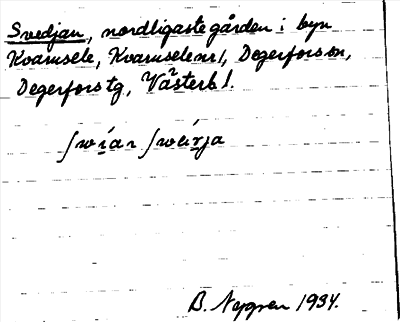 Svedjan, nordligaste gården i byn
Kvarnsele, Kvarnsele nr 1, Degerfors sn,
Degerfors tg, Västerb l.
B. Nygren 1934.